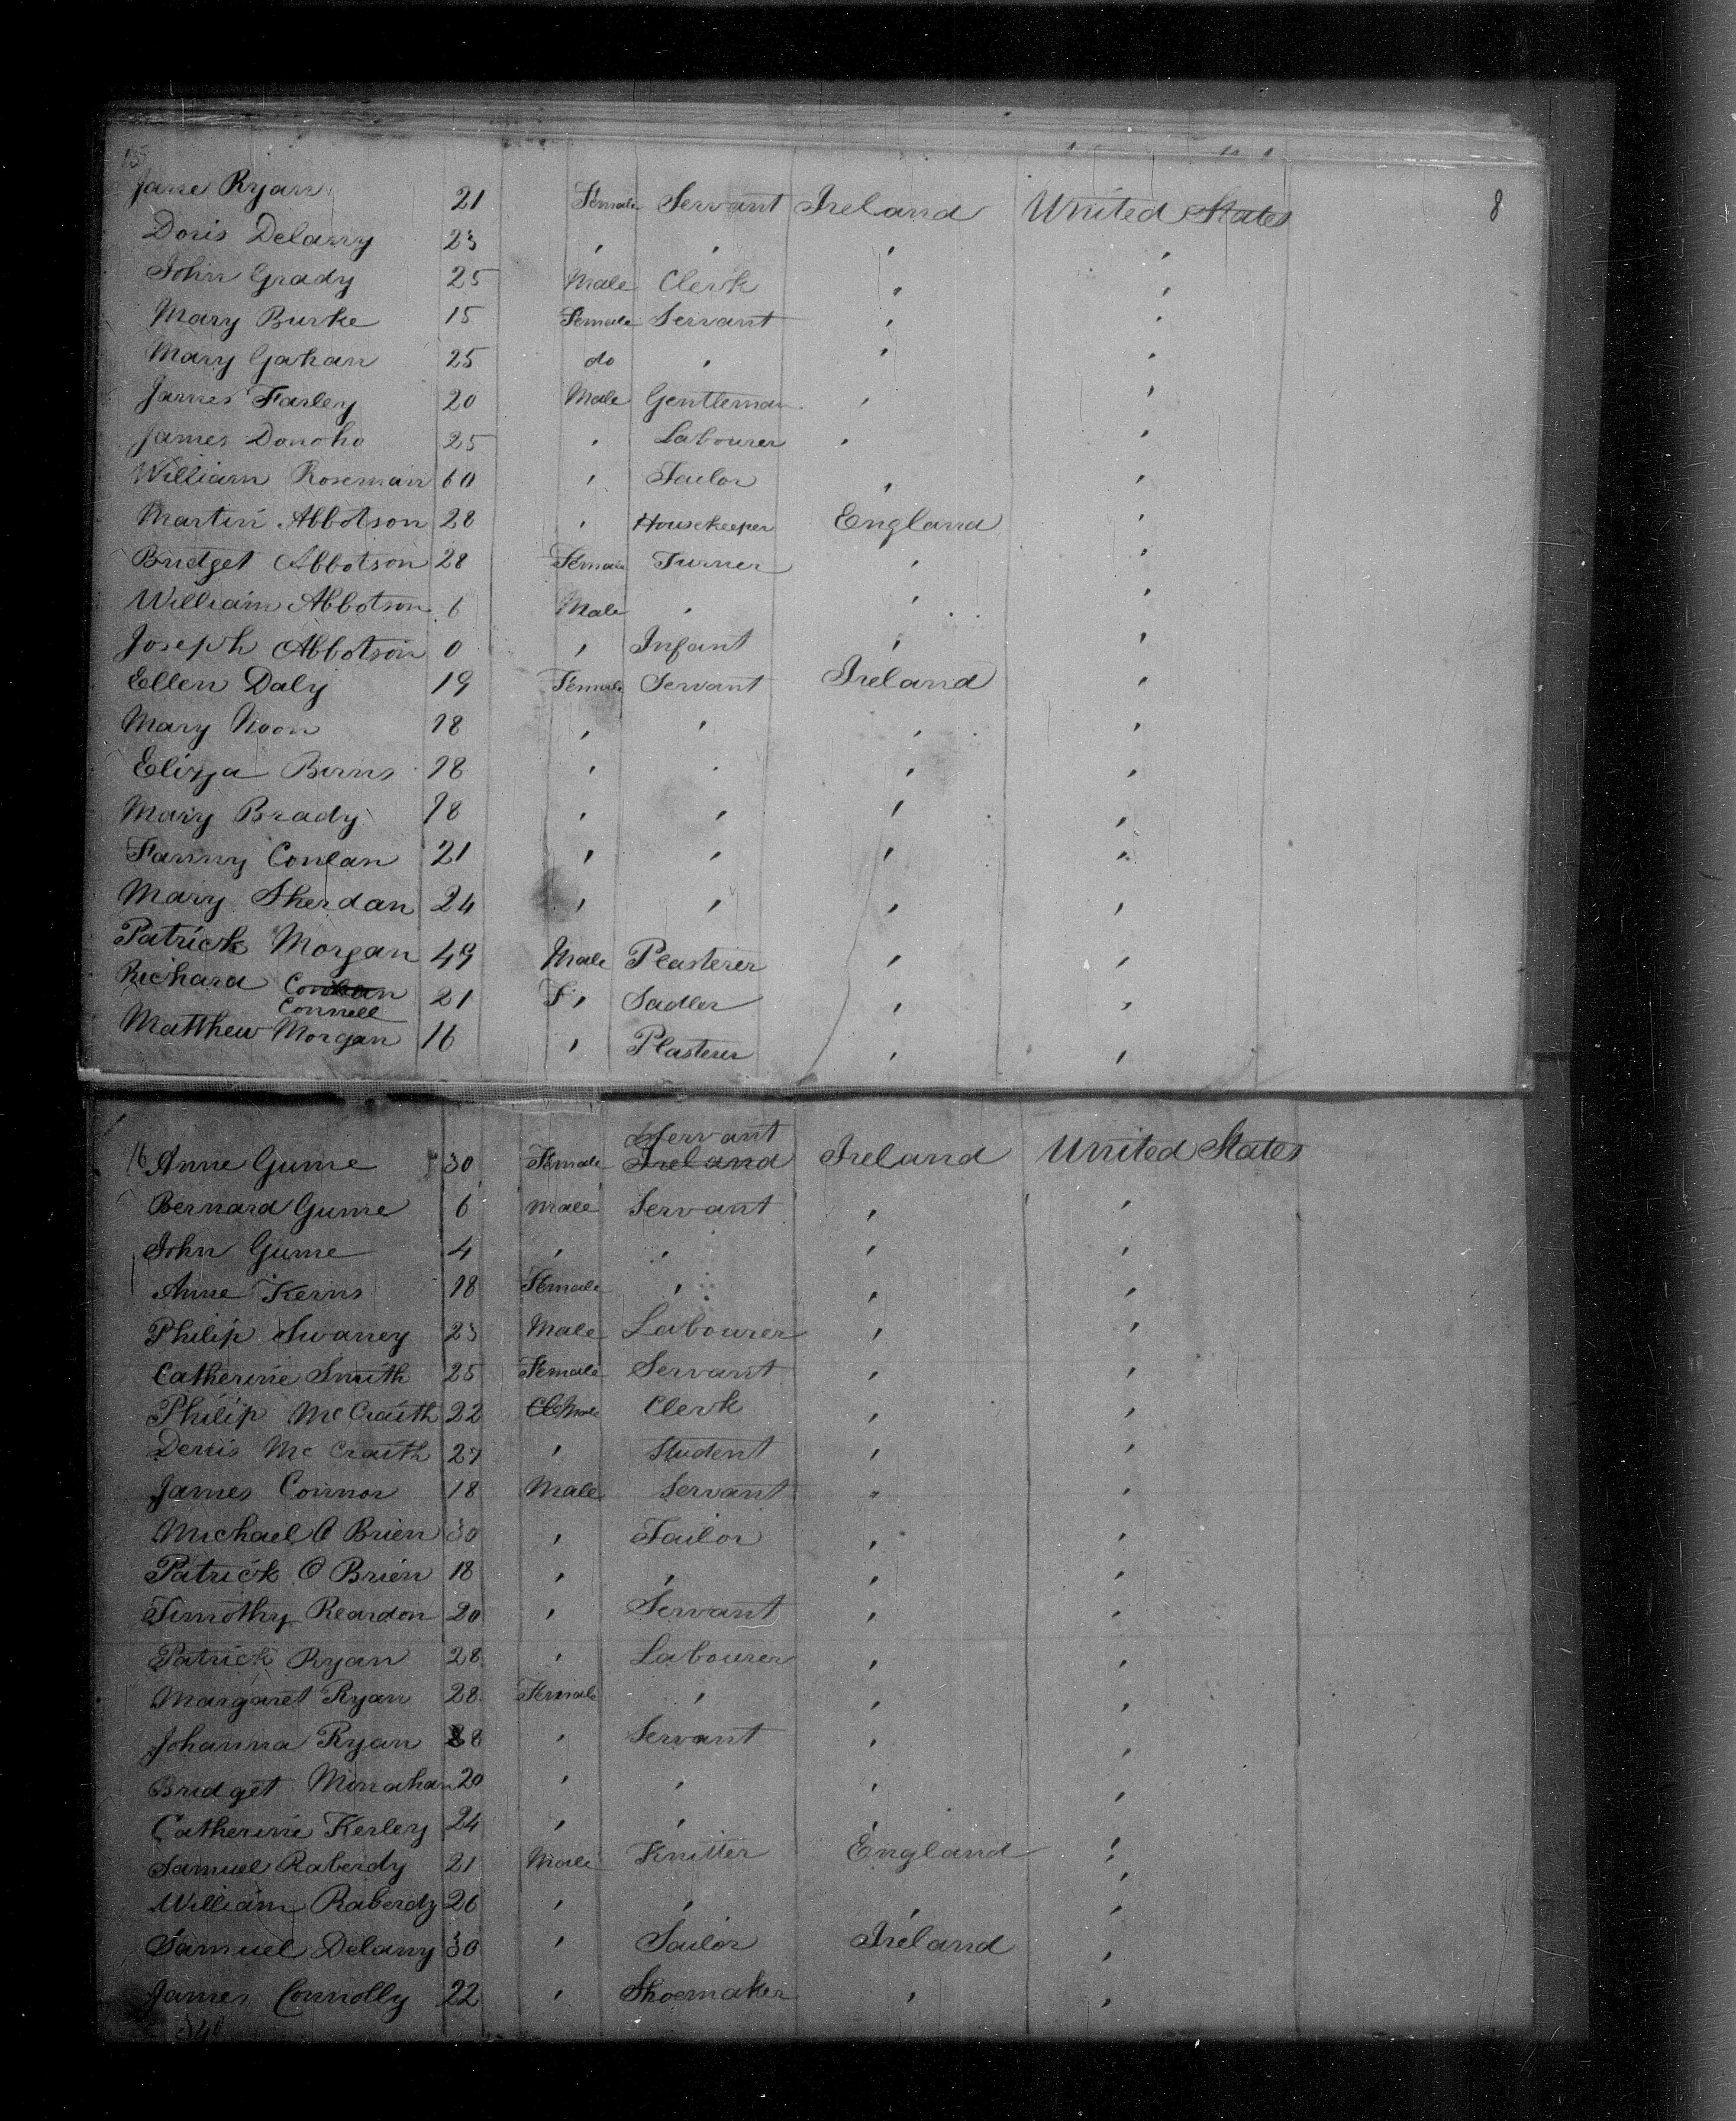 15
Jane Ryan 21 Female Servant Ireland United States 8
Doris Delany 23 , , , ,
John Grady 25 Male Clerk , ,
Mary Burke 15 Female Servant , ,
Mary Gahan 25 do , , ,
James Farley 20 Male Gentleman , ,
James Donoho 25 , Labourer , ,
William Roseman 60 , Tailor , ,
Martin Abbotson 28 , Housekeeper England ,
Bridget Abbotson 28 Female Turner , ,
William Abbotson 6 Male , , ,
Joseph Abbotson 0 , Infant , ,
Ellen Daly 19 Female Servant Ireland ,
Mary Noon 18 , , , ,
Eliza Birns 18 , , , ,
Mary Brady 18 , , , ,
Fanny Conlan 21 , , , ,
Mary Sherdan 24 , , , ,
Patrick Morgan 49 Male Plasterer , ,
Richard Conlan 21 F , Sadler , ,
Connell
Matthew Morgan 16 , Plasterer , ,
Servant
16 Anne Gume 30 Female Ireland Ireland United States
Bernard Gume 6 Male Servant , ,
John Gume 4 , , , ,
Anne Kerns 18 Female , , ,
Philip Swaney 23 Male Labourer , ,
Catherine Smith 25 Female Servant , ,
Philip McCraith 22 Male Clerk , ,
Denis McCraith 27 , Student , ,
James Connor 18 Male Servant " ,
Michael O Brien 30 , Tailor , ,
Patrick O Brien 18 , , , ,
Timothy Reardon 20 , Servant , ,
Patrick Ryan 28 , Labourer , ,
Margaret Ryan 28 Female , , ,
Johanna Ryan 28 , Servant , ,
Bridget Minahan 20 , , , ,
Catherine Kerley 24 , , , ,
Samuel Raberdy 21 Male Knitter England ,
William Raberdy 26 , , , ,
Samuel Delany 30 , Sailor Ireland ,
James Connolly 22 , Shoemaker , ,